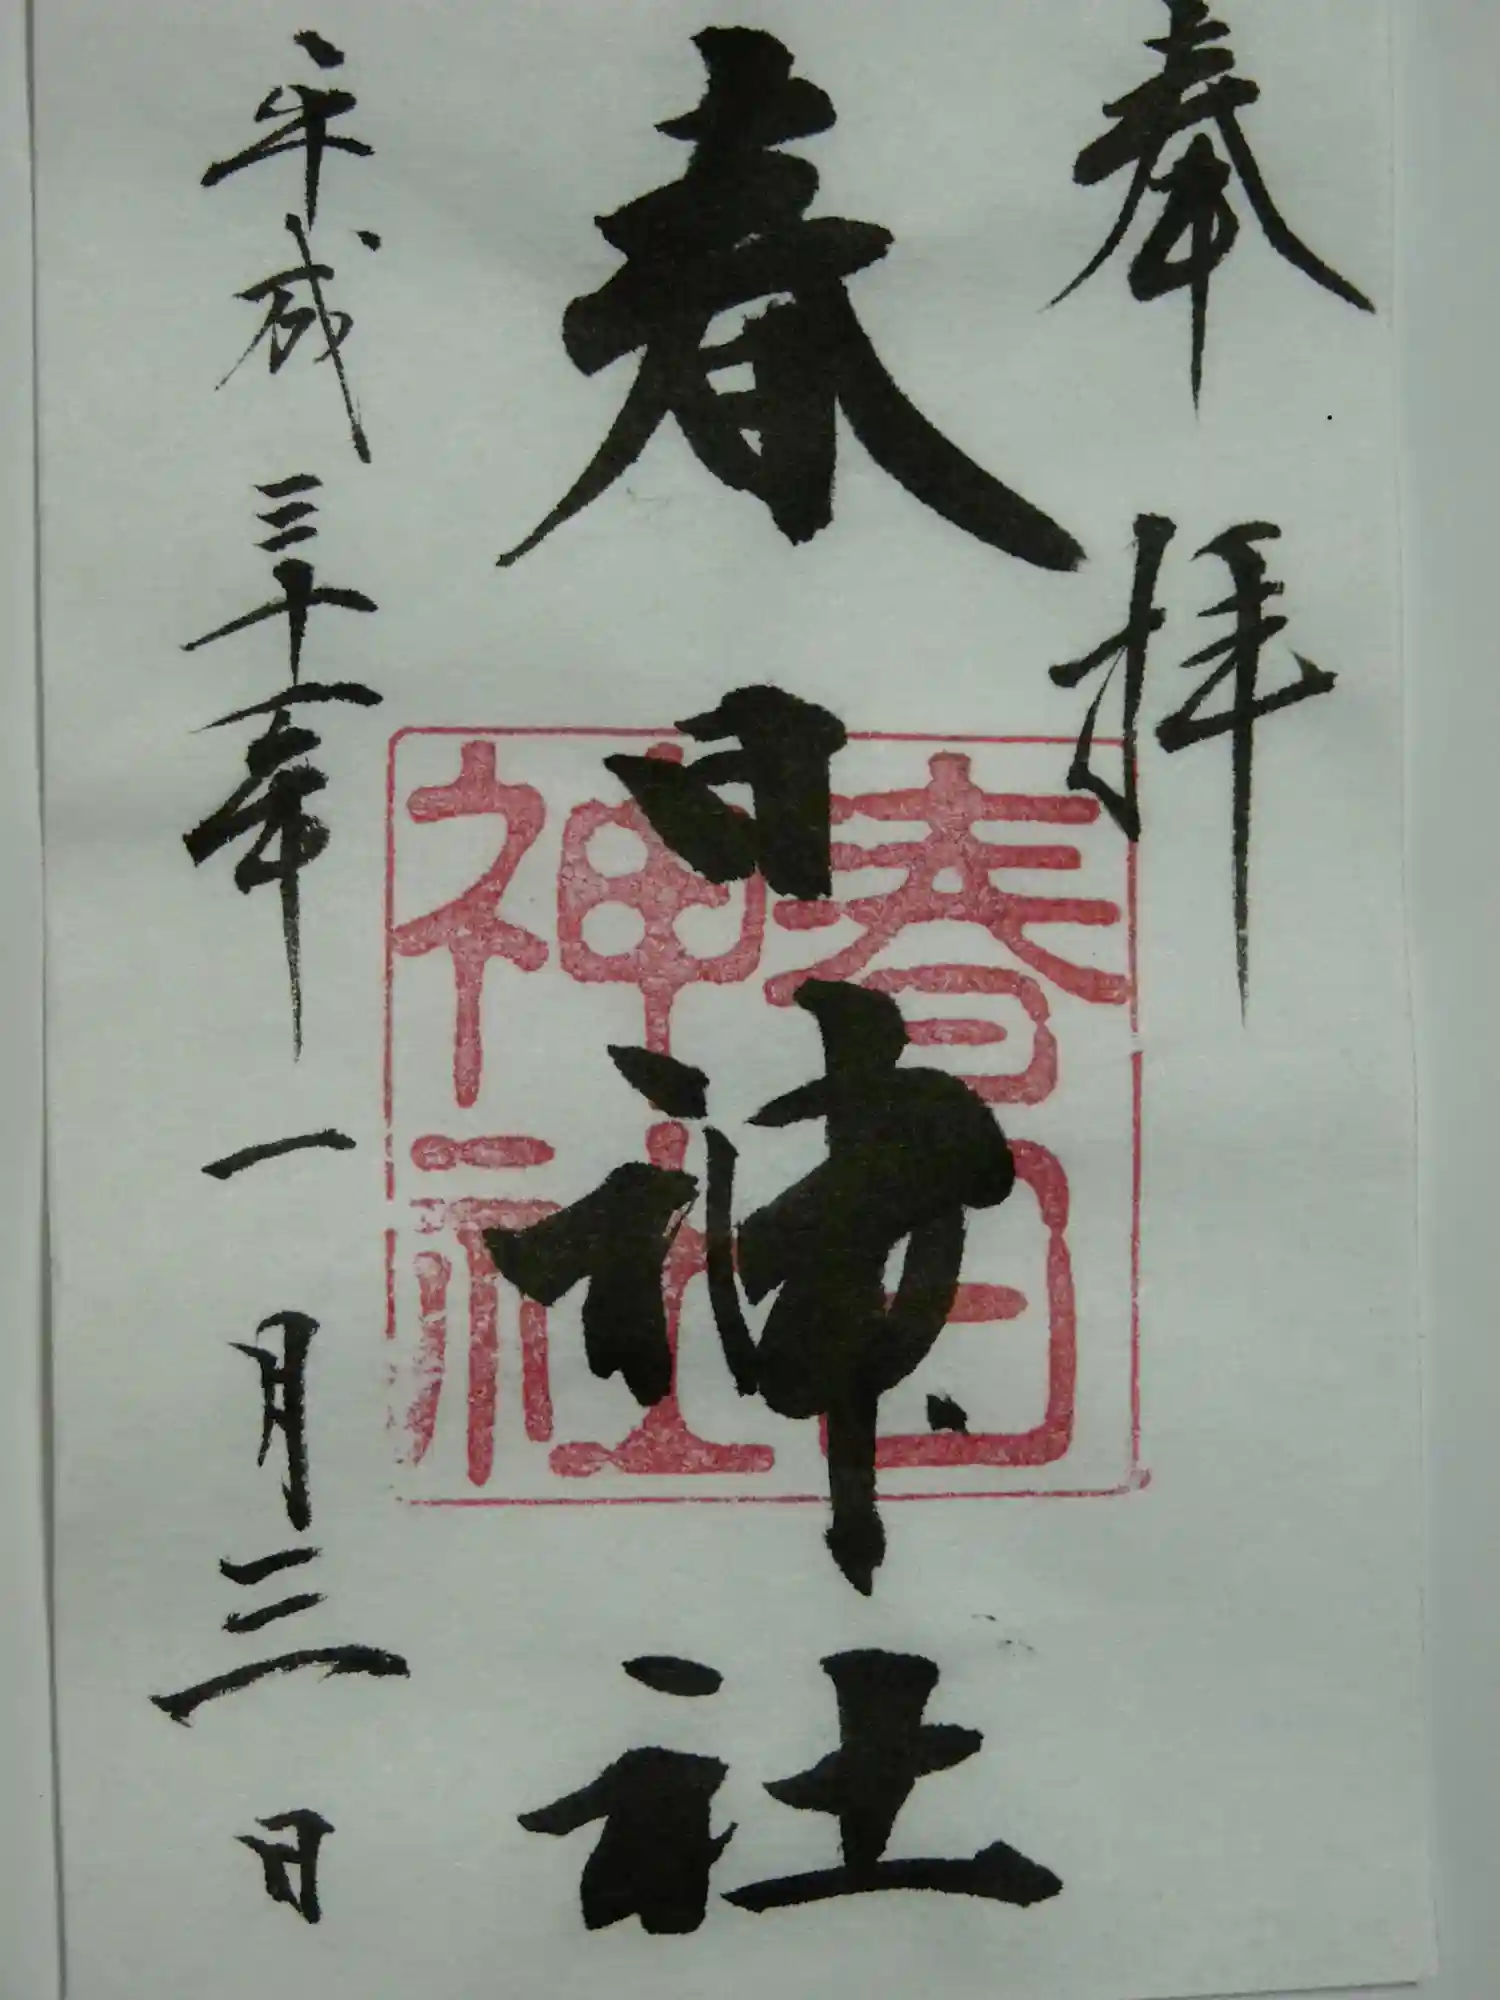 奉拝
春日神社
平成三十一年一月三日
春日
神社